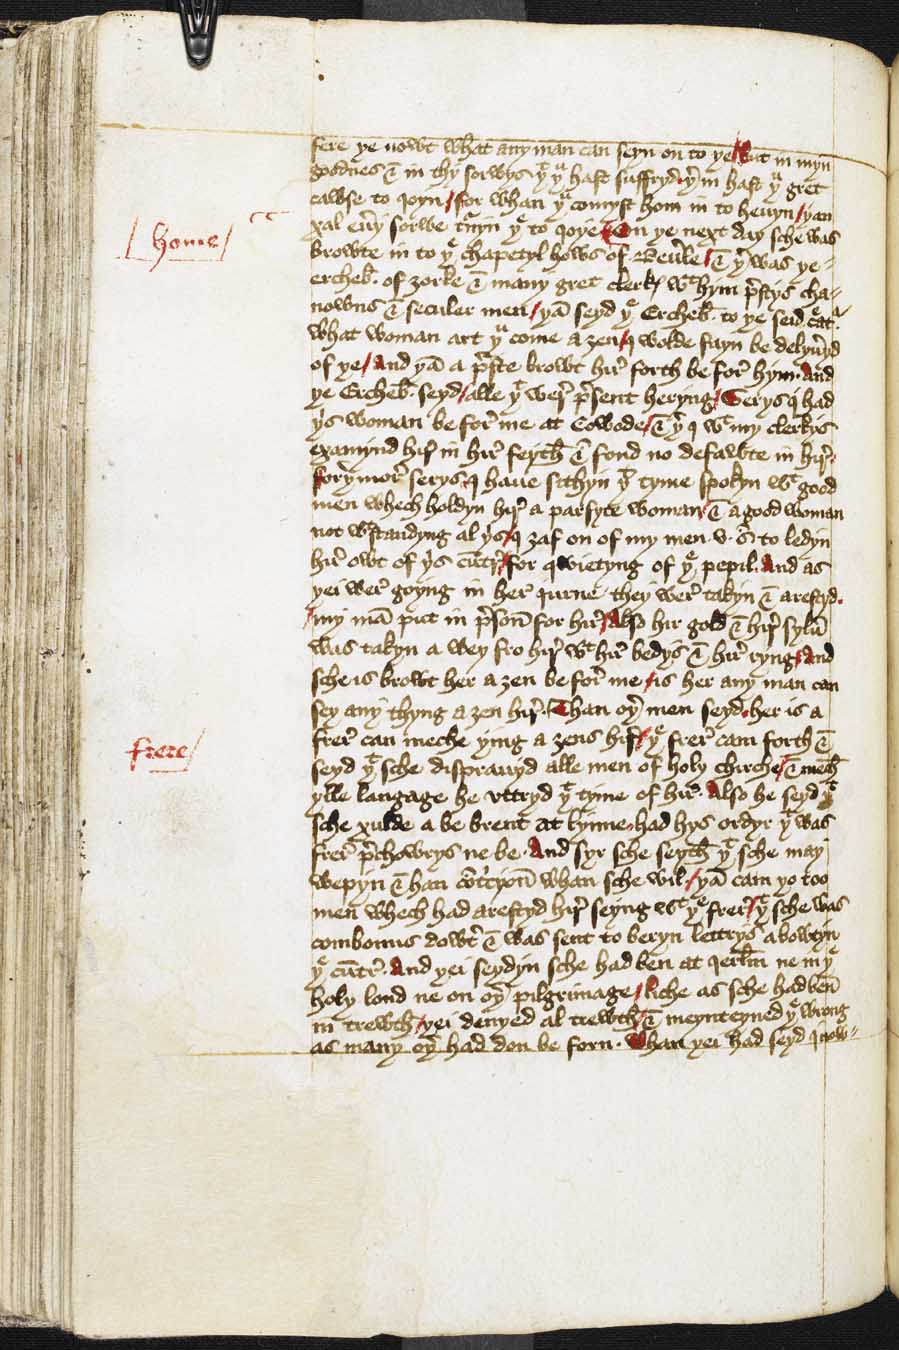 fere ye nowt what any man can seyn on to ye / But in myn
goodnes & in thy sorwys yt yu hast suffryd . yerin hast yu gret
cawse to joyn / for whan yu comyst hom in to hevyn / yan
xal every sorwe turnyn ye to joye / On ye next day sche was
|home|
browte in to ye chapetyl hows of Beuerle / & yer was ye
ercheb. of zorke & many gret clerkys wt hym prestys cha-
nowns & seculer men / yan seyd ye Ercheb. to ye seid creatur
what woman art yu come azen / I wolde fayn be delyueryd
of ye / And yan a preste browt hir forth be for hym . And
ye Ercheb. seyd / alle yt wer present heryng / Serys I had
ys woman be for me at Cowode / & yer I wt my clerkys
examynd hir in hir feyth & fond no defawte in hir .
foryermor serys . I haue sithyn yt tyme spokyn wt good
men whech holdyn hir a parfyte woman / & a good woman
not wtstandyng al ys / I zaf on of my men . v . s to ledyn
hir owt of ys cuntre / for qwietyng of ye pepil . And as
yei wer goyng in her jurne they wer takyn & arestyd .
/ my man put in preson for hir / Also hir gold & hir syluer
was takyn a wey fro hir wt hir bedys & hir ryng / And
sche is browt her azen be for me / is her any man can
sey any thyng azen hir . Than oyer men seyd . her is a
frere /
frer can meche ying azens hir / ye frer cam forth &
seyd yt sche disprauyd alle men of holy chirche / & mech
ylle langage he vttryd yt tyme of hir . Also he seyd yt
sche xulde a be brent at lynne . had hys ordyr yt was
frer prechowrys ne be . And syr sche seyth yt sche may
wepyn & han contricyon whan sche wil . / yan cam yo too
men whech had arestyd hir seyng wt ye frer / yt sche was
combomis dowter & was sent to beryn lettrys abowtyn
ye cuntre . And yei seydyn sche had ben at jerusalem ne in ye
holy lond ne on oyer pilgrimage / liche as sche had ben
in trewth / yei denyed al trewth / & meynteyned ye wrong
as many oyer had don be forn . Whan yei had seyd jnow-